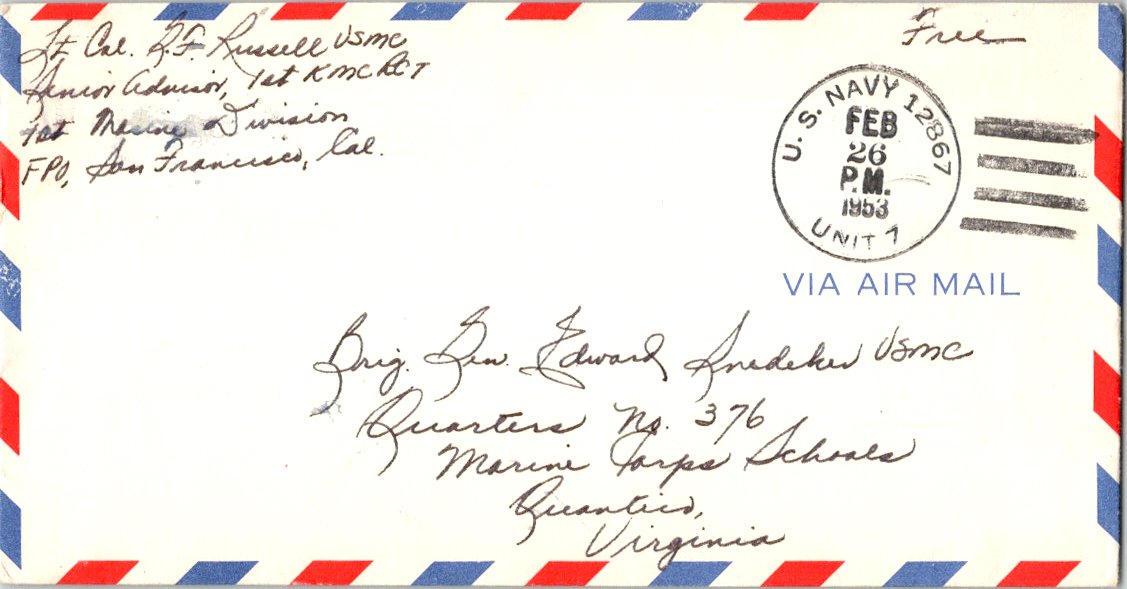 Lt Col. R.F. Russell USMC
Senior Advisor, 1st KMC RCT
1st Marine Division
FPO, San Francisco, Cal.
Free
U. S. NAVY 12867
FEB
26
P.M.
1953
UNIT 1
VIA AIR MAIL
Brig. Gen. Edward Snedeker USMC
Quarters No. 376
Marine Corps Schools
Quantico,
Virginia